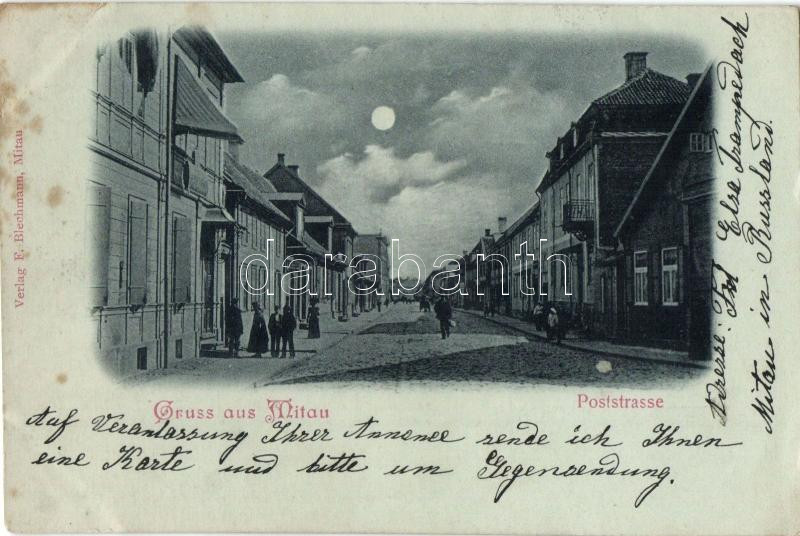 Verlag F. Blechmann, Mitau
darabanth
Gruss aus Mitau
Poststrasse
Auf Veranlassung Ihrer Annonce sende ich Ihnen
eine Karte und bitte um Gegensendung.
Adresse: Frl Else Trampedach
Mitau in Russland.